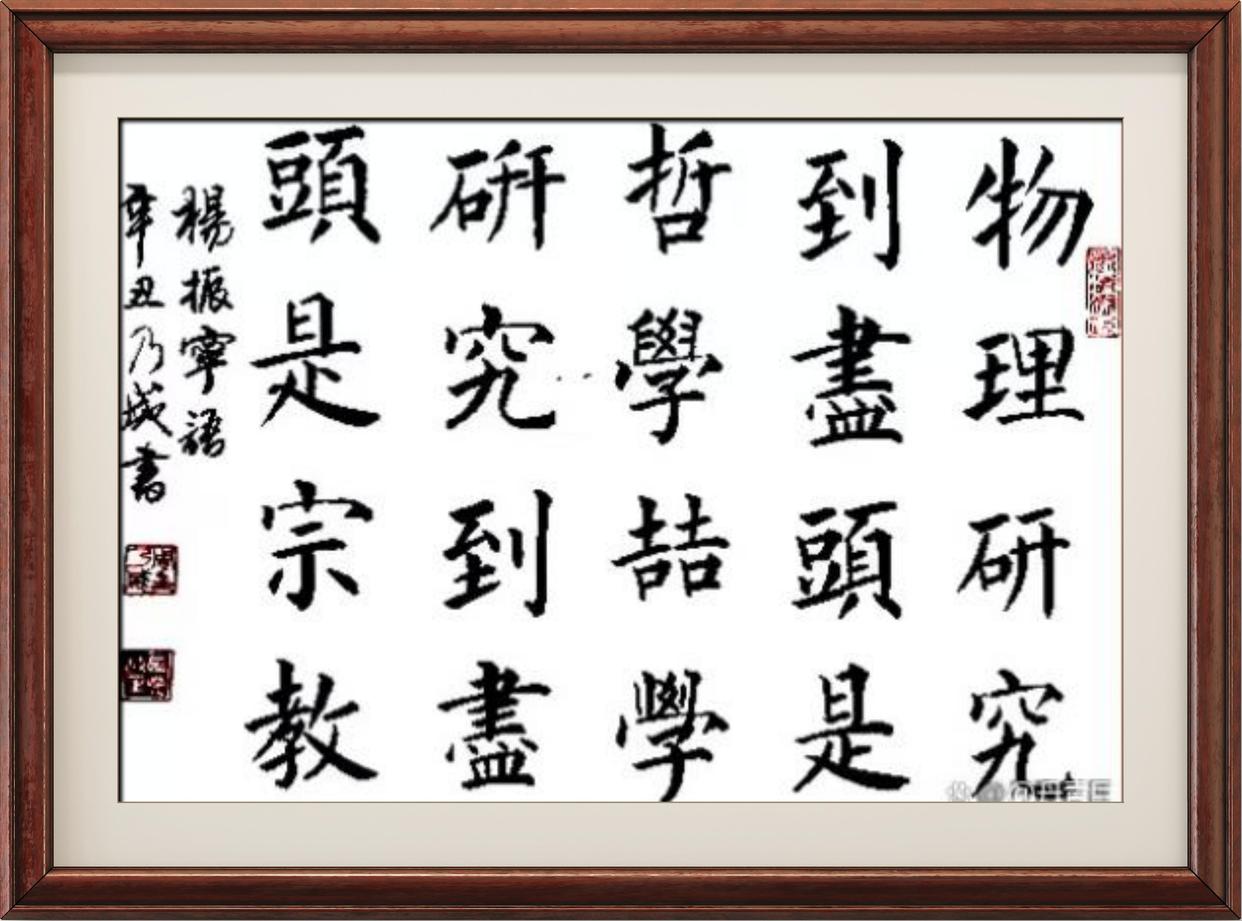 物理研究
到盡頭是
哲學喆學
硏究到盡
頭是宗教
楊振寧語
辛丑乃成書